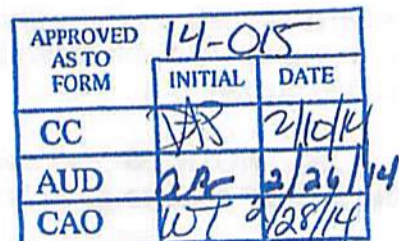 APPROVED AS TO FORM 14-015
INITIAL DATE
CC 2/10/14
AUD 2/26/14
CAO WT 2/28/14